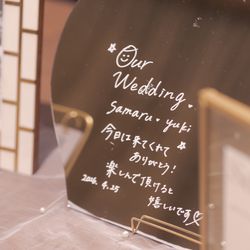 Our
Wedding
Samaru・yuki
今日は来てくれて
ありがとう!
楽しんで頂けると
嬉しいです♡
2026.4.25